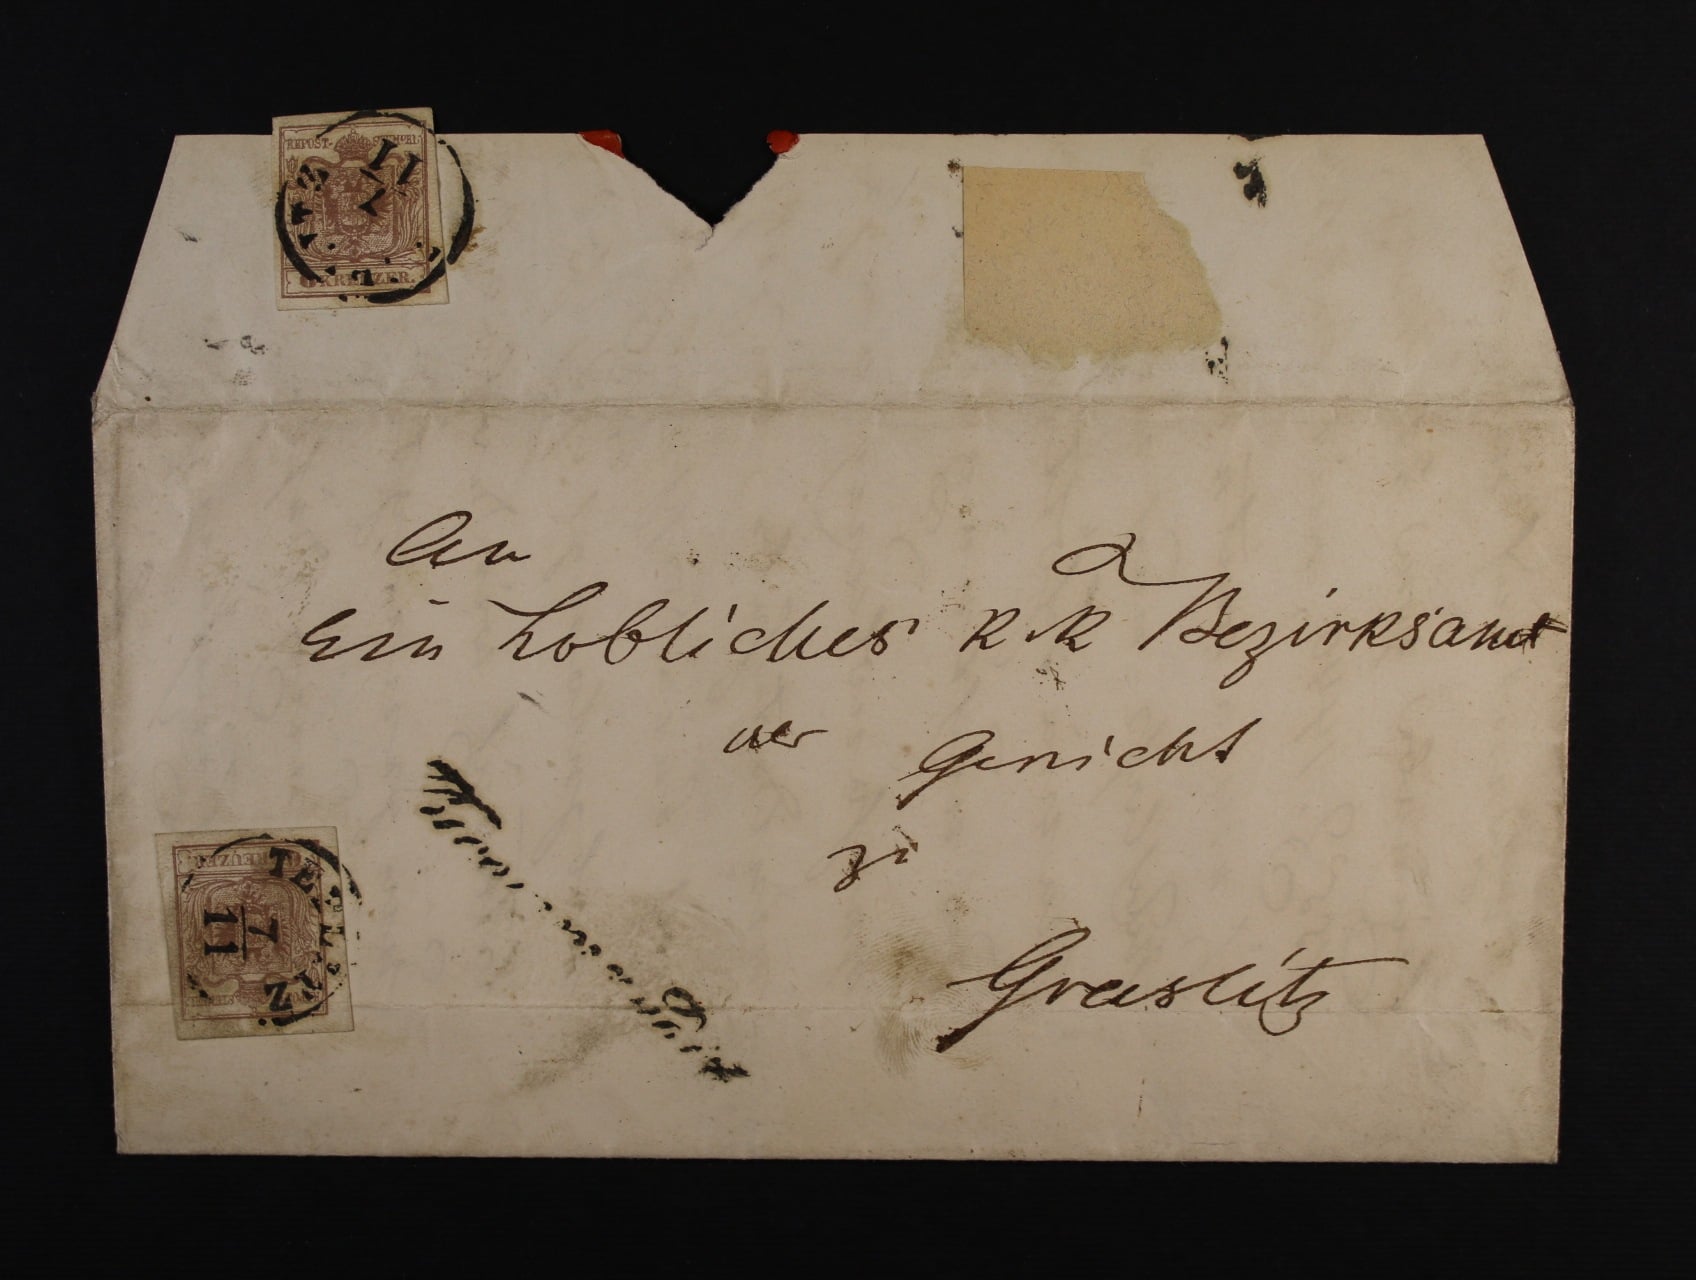 KKPOST-STEMPEL
6 KREUZER.
11
7
An
Ein Lobliches K. K. Bezirksamt
der Gericht
zu
Graslitz
Recommandirt
6 KREUZER
TEPLITZ
7
11